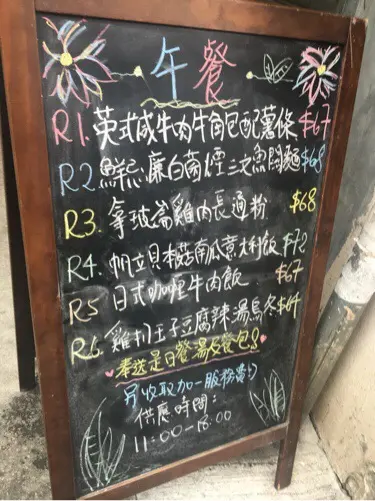 午餐
R1. 英式咸牛肉牛角包配薯條 $67
R2. 鮮忌廉白菌煙三文魚闊麵 $68
R3. 拿破崙雞肉長通粉 $68
R4. 帆立貝本菇南瓜意大利飯 $72
R5 日式咖喱牛肉飯 $67
R6. 雞扒玉子豆腐辣湯烏冬 $64
奉送是日餐湯及餐包
另收取加一服務費
供應時間：
11:00-18:00